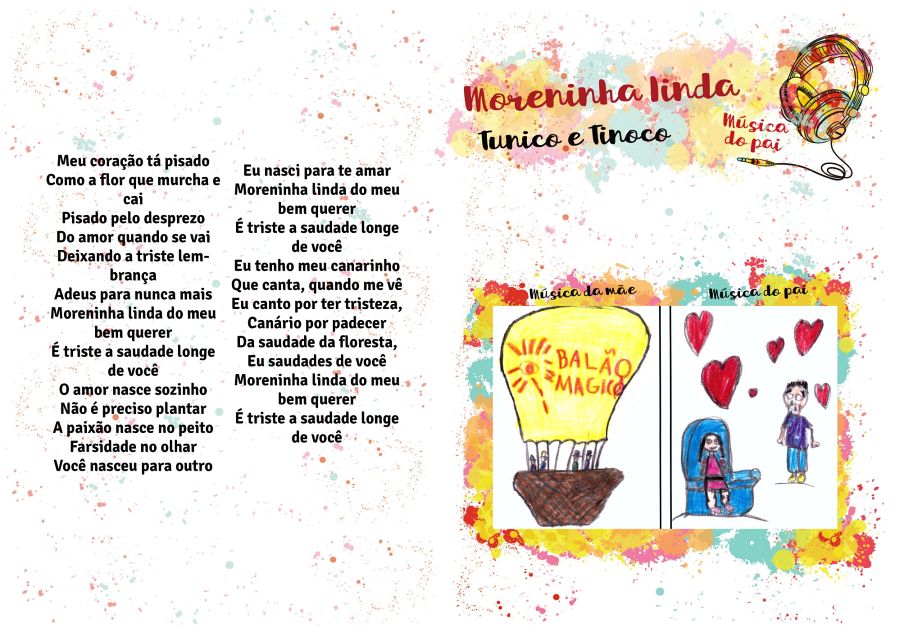 Meu coração tá pisado
Como a flor que murcha e
cai
Pisado pelo desprezo
Do amor quando se vai
Deixando a triste lem-
brança
Adeus para nunca mais
Moreninha linda do meu
bem querer
É triste a saudade longe
de você
O amor nasce sozinho
Não é preciso plantar
A paixão nasce no peito
Farsidade no olhar
Você nasceu para outro
Eu nasci para te amar
Moreninha linda do meu
bem querer
É triste a saudade longe
de você
Eu tenho meu canarinho
Que canta, quando me vê
Eu canto por ter tristeza,
Canário por padecer
Da saudade da floresta,
Eu saudades de você
Moreninha linda do meu
bem querer
É triste a saudade longe
de você
Moreninha linda
Tunico e Tinoco
Música
do pai
Música da mãe
Música do pai
BALÃO
MAGICO